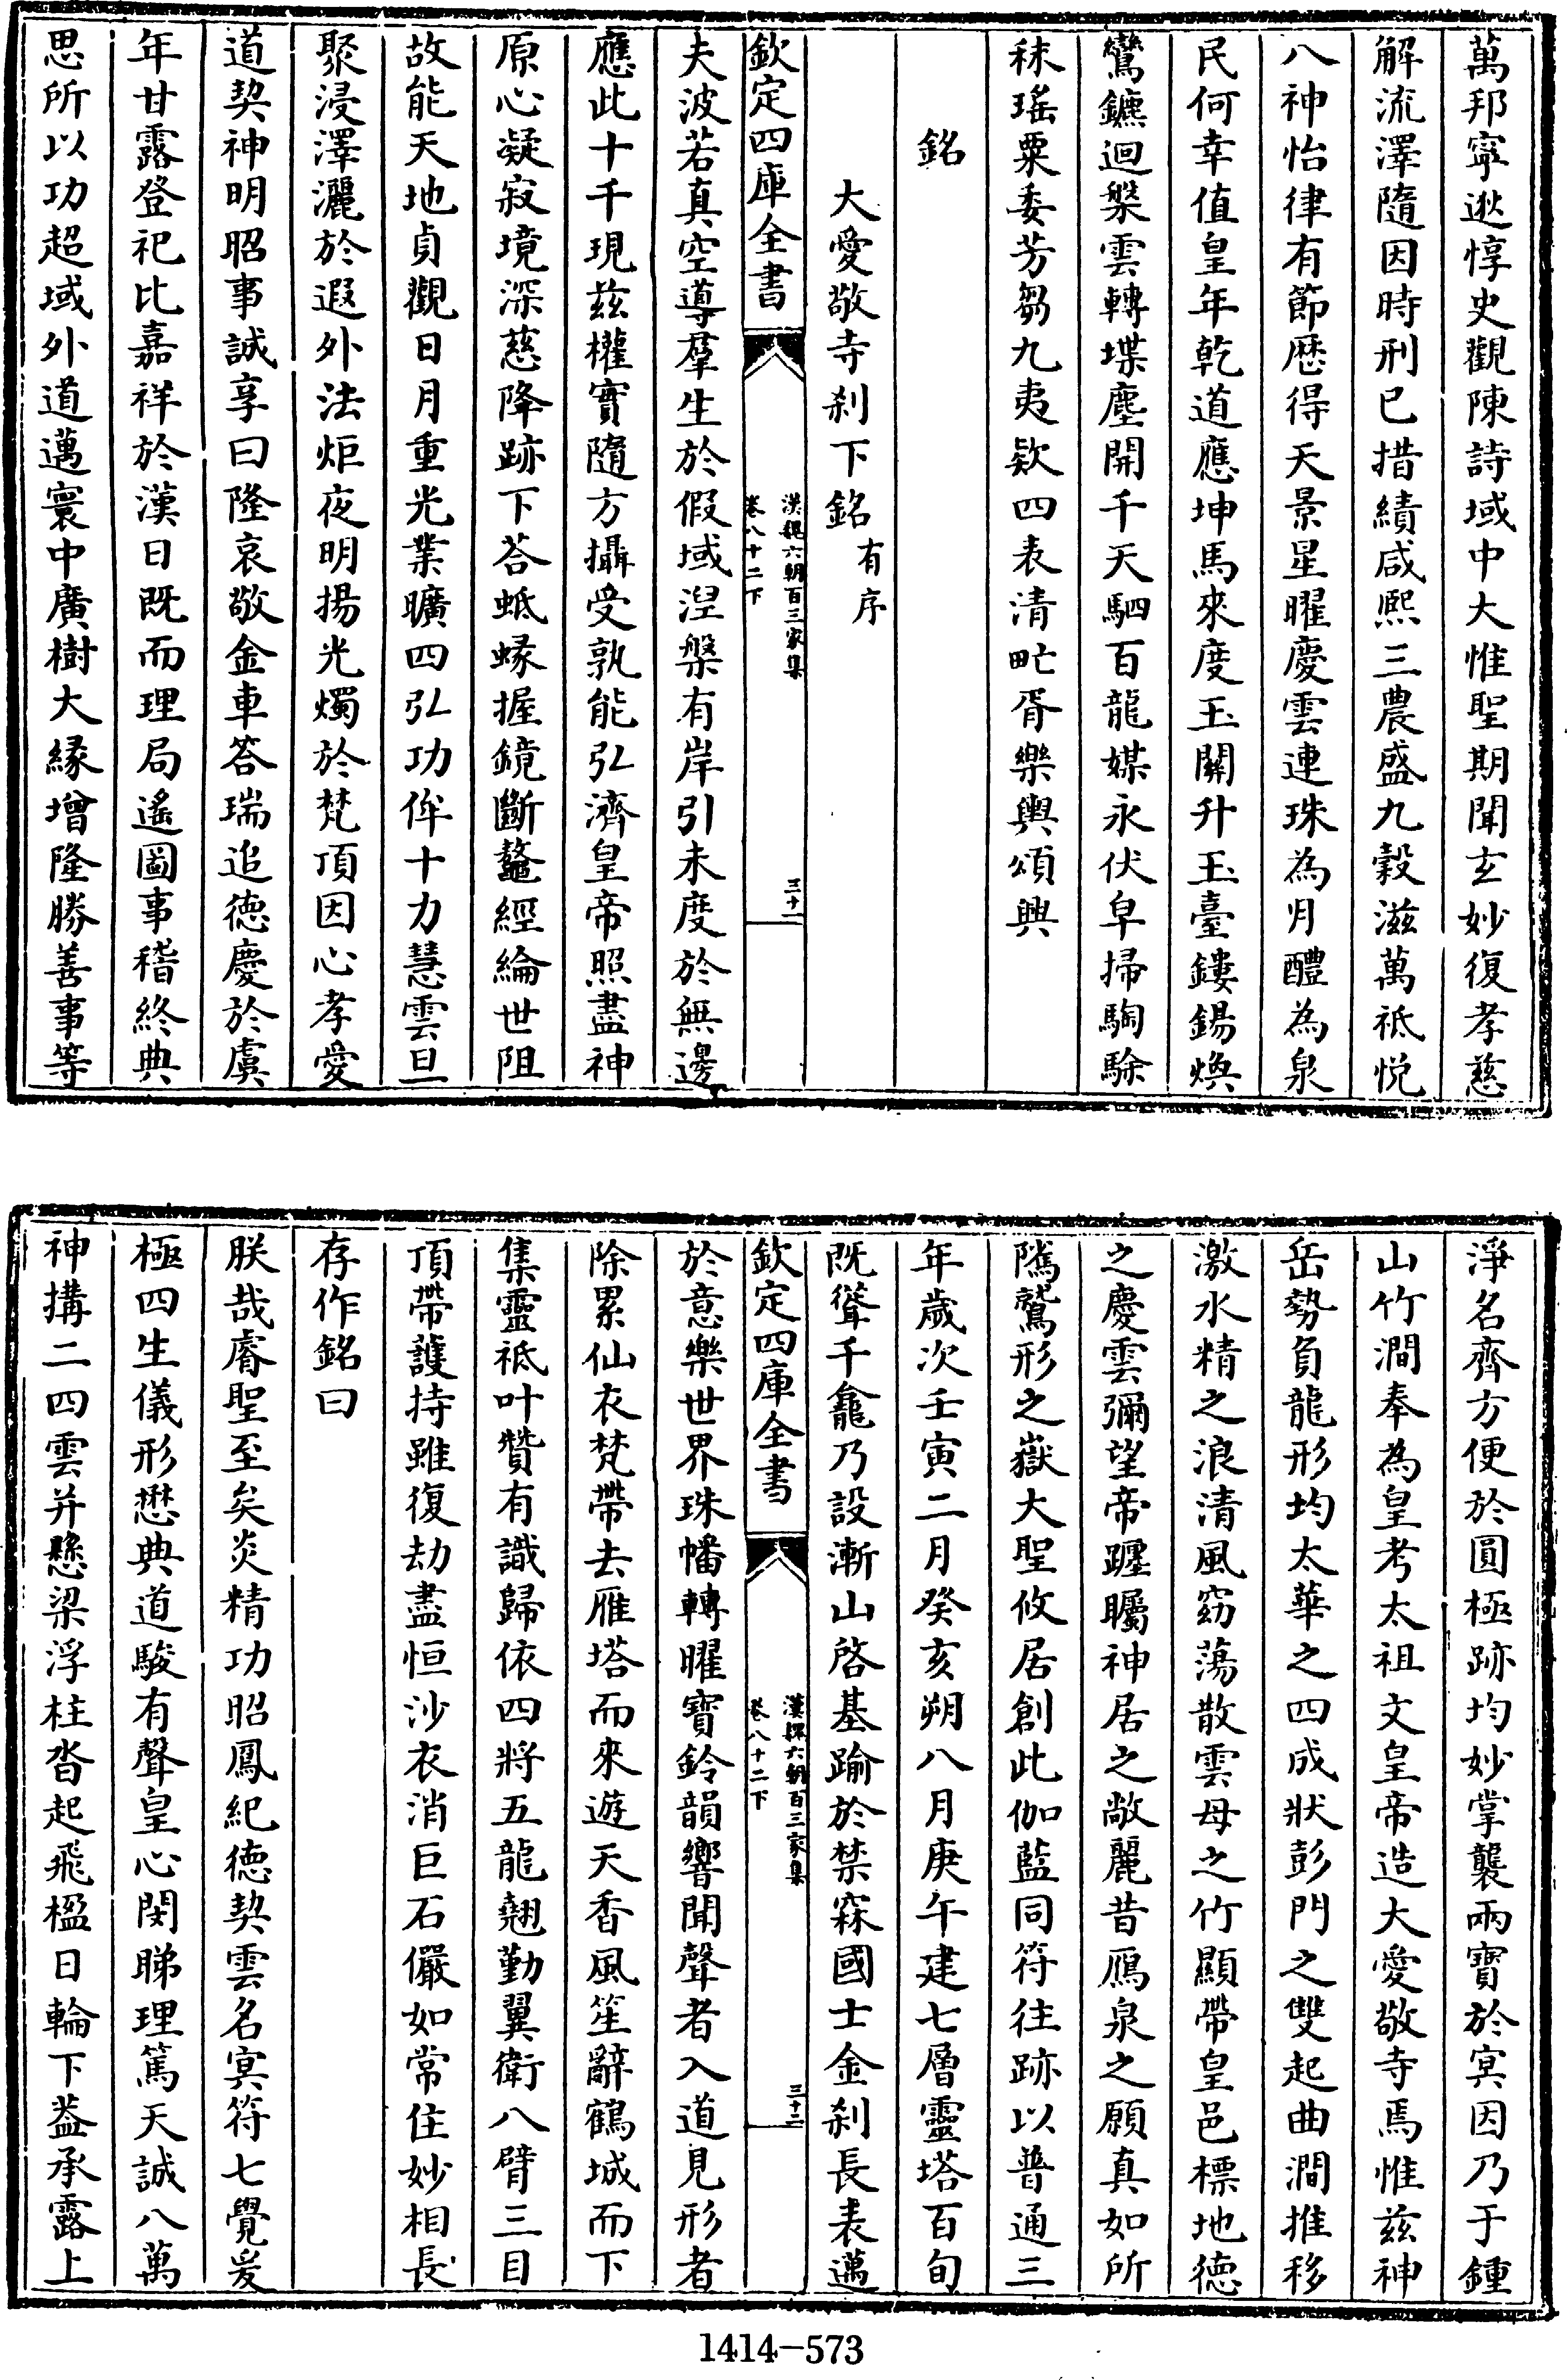 萬邦寧逖惇史觀陳詩域中大惟聖期聞玄妙復孝慈
解流澤隨因時刑已措績咸熙三農盛九穀滋萬祗悅
八神怡律有節厯得天景星曜慶雲連珠為月醴為泉
民何幸值皇年乾道應坤馬來度玉關升玉臺鏤鍚煥
鸞鑣迴槃雲轉堞塵開千天駟百龍媒永伏皁掃騊駼
秣瑤粟委芳芻九夷欵四表清甿胥樂輿頌興
銘
大愛敬寺刹下銘有序
欽定四庫全書
漢魏六朝百三家集
卷八十二下
三十一
夫波若真空導羣生於假域湼槃有岸引未度於無邊
應此十千現兹權實隨方攝受孰能弘濟皇帝照盡神
原心凝寂境深慈降跡下荅蚳蝝握鏡斷鼇經綸世阻
故能天地貞觀日月重光業曠四弘功侔十力慧雲旦
聚浸澤灑於遐外法炬夜明揚光燭於梵頂因心孝愛
道契神明昭事誠享曰隆哀敬金車答瑞追德慶於虞
年甘露登祀比嘉祥於漢日既而理局遙圖事稽終典
思所以功超域外道邁寰中廣樹大縁增隆勝善事等
淨名齊方便於圓極跡均妙掌襲兩寳於寘因乃于鍾
山竹澗奉為皇考太祖文皇帝造大愛敬寺焉惟兹神
岳勢負龍形均太華之四成狀彭門之雙起曲澗推移
激水精之浪清風窈蕩散雲母之竹顯帶皇邑標地德
之慶雲彌望帝躔矚神居之敞麗昔鴈泉之願真如所
隲鷲形之嶽大聖攸居創此伽藍同符往跡以普通三
年歲次壬寅二月癸亥朔八月庚午建七層靈塔百旬
既聳千龕乃設漸山啓基踰於禁寀國士金刹長表邁
欽定四庫全書
漢魏六朝百三家集
卷八十二下
三十二
於意樂世界珠幡轉曜寳鈴韻響聞聲者入道見形者
除累仙衣梵帶去雁塔而來遊天香風笙辭鶴城而下
集靈祗叶贊有識歸依四將五龍翹勤翼衛八臂三目
頂帶護持雖復劫盡恒沙衣消巨石儼如常住妙相長
存作銘曰
朕哉睿聖至矣炎精功昭鳳紀德契雲名寘符七覺爰
極四生儀形懋典道駿有聲皇心閔睇理篤天誠八萬
神搆二四雲并懸梁浮柱沓起飛楹日輪下葢承露上
1414-573